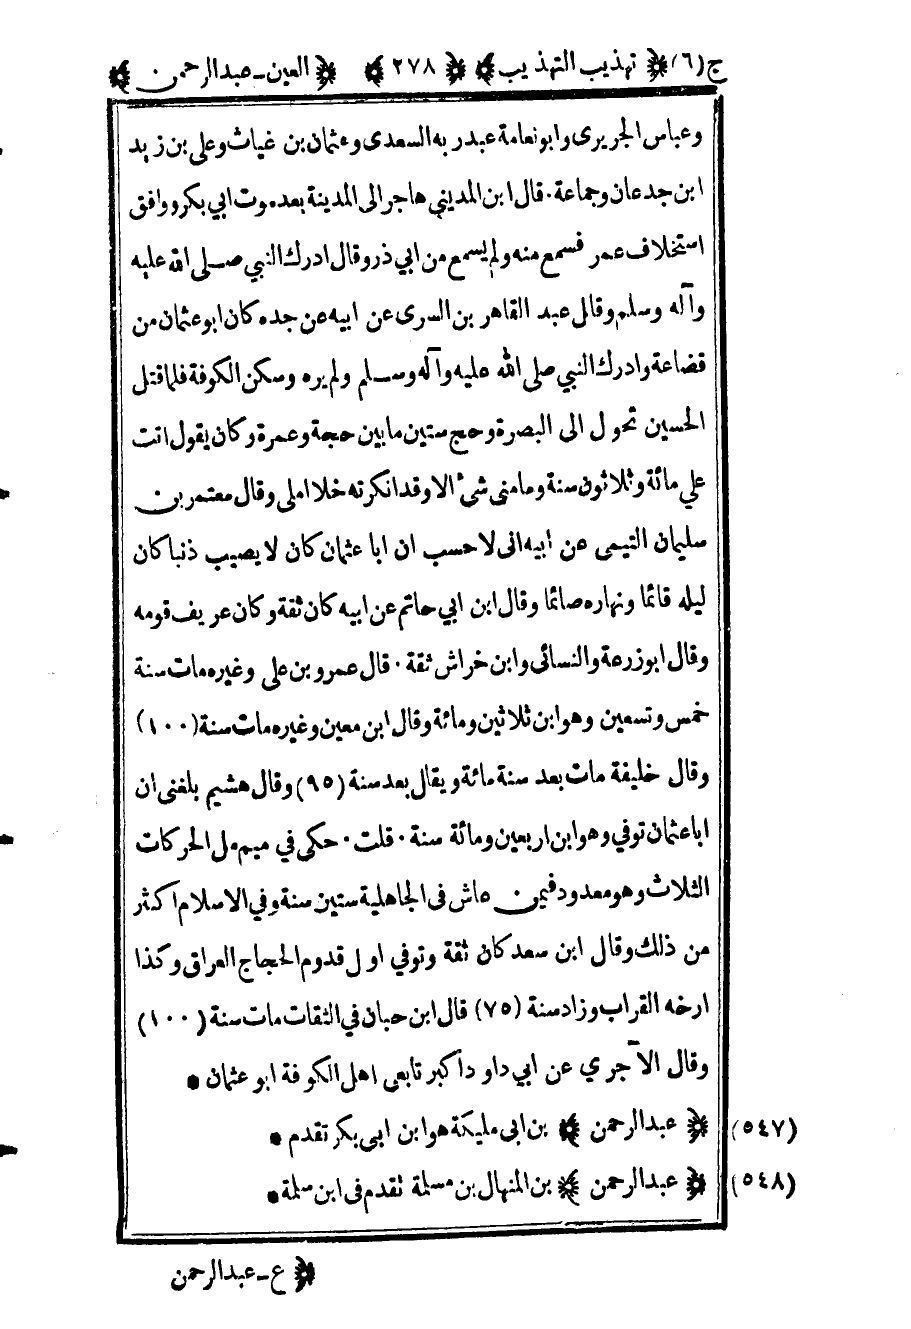 ج(٦) ﴿ تهذيب التهذيب ﴾ ﴿ ٢٧٨ ﴾ ﴿ العين ـ عبدالرحمن ﴾
وعباس الجريرى وابونعامة عبدربه السعدى وعثمان بن غياث وعلى بن زيد
ابن جدعان وجماعة ٠ قال ابن المديني هاجر الى المدينة بعد موت ابي بكر ووافق
استخلاف عمر فسمع منه ولم يسمع من ابي ذر وقال ادرك النبي صلى الله عليه
وآله وسلم وقال عبد القاهر بن السرى عن ابيه عن جده كان ابوعثمان من
قضاعة وادرك النبي صلى الله عليه وآله وسلم ولم يره وسكن الكوفة فلما قتل
الحسين تحول الى البصرة وحج ستين مابين حجة وعمرة وكان يقول اتت
علي مائة وثلاثون سنة ومامنى شئ الا وقد انكرته خلا املى وقال معتمر بن
سليمان التيمى عن ابيه انى لاحسب ان ابا عثمان كان لا يصيب ذنبا كان
ليله قائما ونهاره صائما وقال ابن ابي حاتم عن ابيه كان ثقة وكان عريف قومه
وقال ابوزرعة والنسائى وابن خراش ثقة ٠ قال عمرو بن على وغيره مات سنة
خمس وتسعين وهو ابن ثلاثين ومائة وقال ابن معين وغيره مات سنة (١٠٠)
وقال خليفة مات بعد سنة مائة ويقال بعد سنة (٩٥) وقال هشيم بلغنى ان
اباعثمان توفي وهو ابن اربعين ومائة سنة ٠ قلت ٠ حكى في ميم مل الحركات
الثلاث وهو معدود فيمن عاش فى الجاهلية ستين سنة وفي الاسلام اكثر
من ذلك وقال ابن سعد كان ثقة وتوفي اول قدوم الحجاج العراق وكذا
ارخه القراب وزاد سنة (٧٥) قال ابن حبان في الثقات مات سنة (١٠٠)
وقال الآجري عن ابي داود اكبر تابعى اهل الكوفة ابو عثمان •
(٥٤٧) ﴿ عبدالرحمن ﴾ بن ابى مليكة هو ابن ابى بكر تقدم •
(٥٤٨) ﴿ عبدالرحمن ﴾ بن المنهال بن مسلمة تقدم فى ابن سلمة •
﴿ ع ـ عبدالرحمن